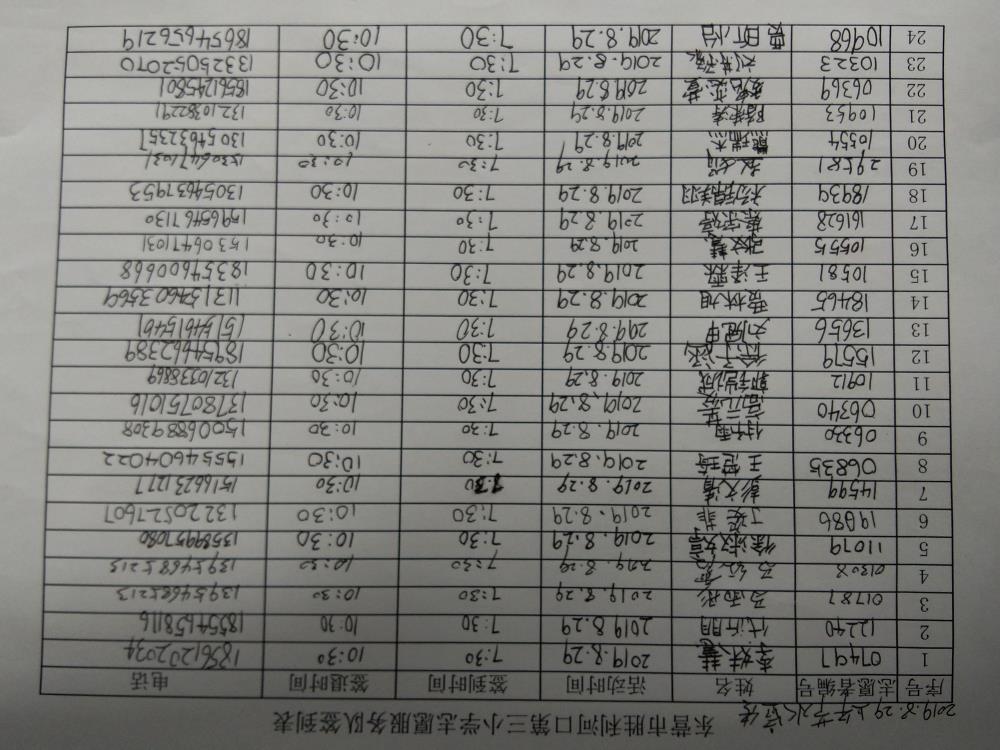 东营市胜利河口第三小学志愿服务队签到表
2019.8.29上午节水宣传
序号 志愿者编号 姓名 活动时间 签到时间 签退时间 电话
1 07497 2019.8.29 7:30 10:30 18561202034
2 12240 2019.8.29 7:30 10:30 18554658116
3 01787 马雨彤 2019.8.29 7:30 10:30 13954685213
4 01308 2019.8.29 7:30 10:30 13954685213
5 11079 2019.8.29 7:30 10:30 13589951080
6 19086 丁姿非 2019.8.29 7:30 10:30 13220527607
7 14599 彭文清 2019.8.29 7:30 10:30 15166231277
8 06835 王冠琦 2019.8.29 7:30 10:30 15554604022
9 06330 2019.8.29 7:30 10:30 15006889308
10 06340 2019.8.29 7:30 10:30 13780751016
11 10912 郭皓诚 2019.8.29 7:30 10:30 13210338869
12 15579 徐子涵 2019.8.29 7:30 10:30 18954662389
13 13656 2019.8.29 7:30 10:30 15154615461
14 18465 贾林旭 2019.8.29 7:30 10:30
15 10581 王泽霖 2019.8.29 7:30 10:30 18354600668
16 10555 2019.8.29 7:30 10:30 15306471031
17 161628 2019.8.29 7:30 10:30 15965467130
18 18939 杨锦翔 2019.8.29 7:30 10:30 13054637953
19 29581 2019.8.29 7:30 10:30 15306471031
20 10554 熊瑞杰 2019.8.29 7:30 10:30 13054632357
21 10953 2019.8.29 7:30 10:30 13210382291
22 06369 2019.8.29 7:30 10:30 18561245801
23 10323 2019.8.29 7:30 10:30 13325052070
24 10968 2019.8.29 7:30 10:30 18654656219